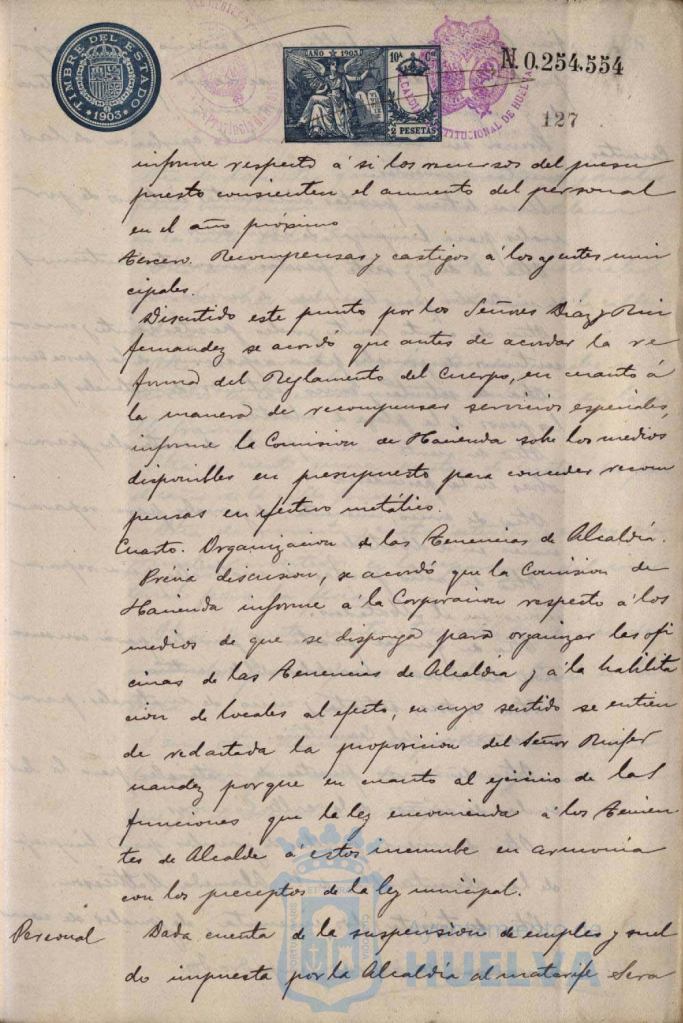 TIMBRE DEL ESTADO
* 1903 *
AÑO 1903
10ª Cse
2 PESETAS
ALCALDIA CONSTITUCIONAL DE HUELVA
N. 0.254.554
127
informe respecto á si los recursos del presu
puesto consienten el aumento del personal
en el año próximo
tercero. Recompensas y castigos á los agentes muni
cipales.
Discutido este punto por los Señores Diaz y Rui
fernandez se acordó que antes de acordar la re
forma del Reglamento del Cuerpo, en cuanto á
la manera de recompensar servicios especiales,
informe la Comision de Hacienda sobe los medios
disponibles en presupuesto para conceder recom
pensas en efectivo metálico.
Cuarto. Organizacion de las Tenencias de Alcaldía.
Prévia discusion, se acordó que la Comision de
Hacienda informe á la Corporacion respecto á los
medios de que se disponga para organizar las ofi
cinas de las Tenencias de Alcaldia y á la habilita
cion de locales al efecto, en cuyo sentido se entien
de redactada la proposicion del Señor Ruifer
nandez porque en cuanto al ejercicio de las
funciones que la ley encomienda á los Tenien
tes de Alcalde á estos incumbe en armonia
con los preceptos de la ley municipal.
Personal Dada cuenta de la suspension de empleo y suel
do impuesta por la Alcaldía al matarife Sera
Ayuntamiento de
HUELVA